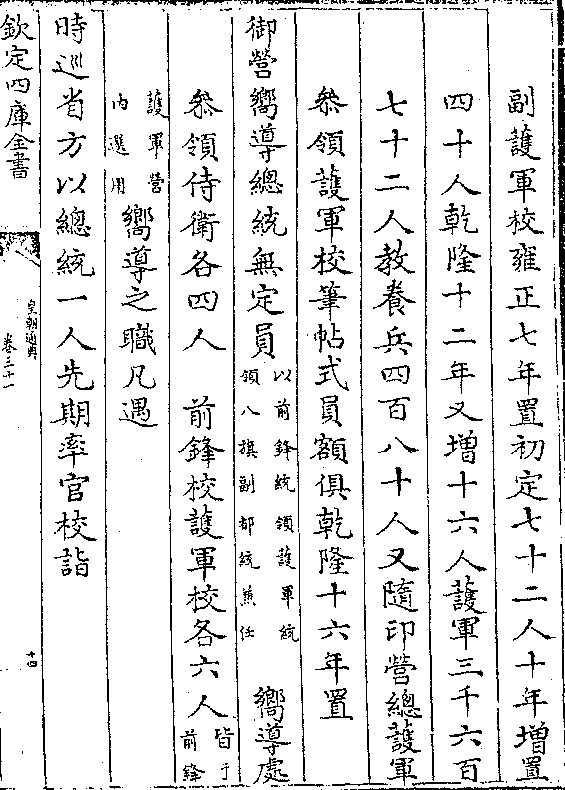 副䕶軍校雍正七年置初定七十二人十年增置
四十人乾隆十二年又增十六人䕶軍三千六百
七十二人教養兵四百八十人又隨印營總䕶軍
叅領䕶軍校筆帖式員額俱乾隆十六年置
御營嚮導總統無定員以前鋒統領䕶軍統領八旗副都統兼任 嚮導處
叅領侍衛各四人 前鋒校䕶軍校各六人皆于前鋒
䕶軍營内選用嚮導之職凡遇
時巡省方以總統一人先期率官校詣
欽定四庫全書
皇朝通典
卷三十一
十四